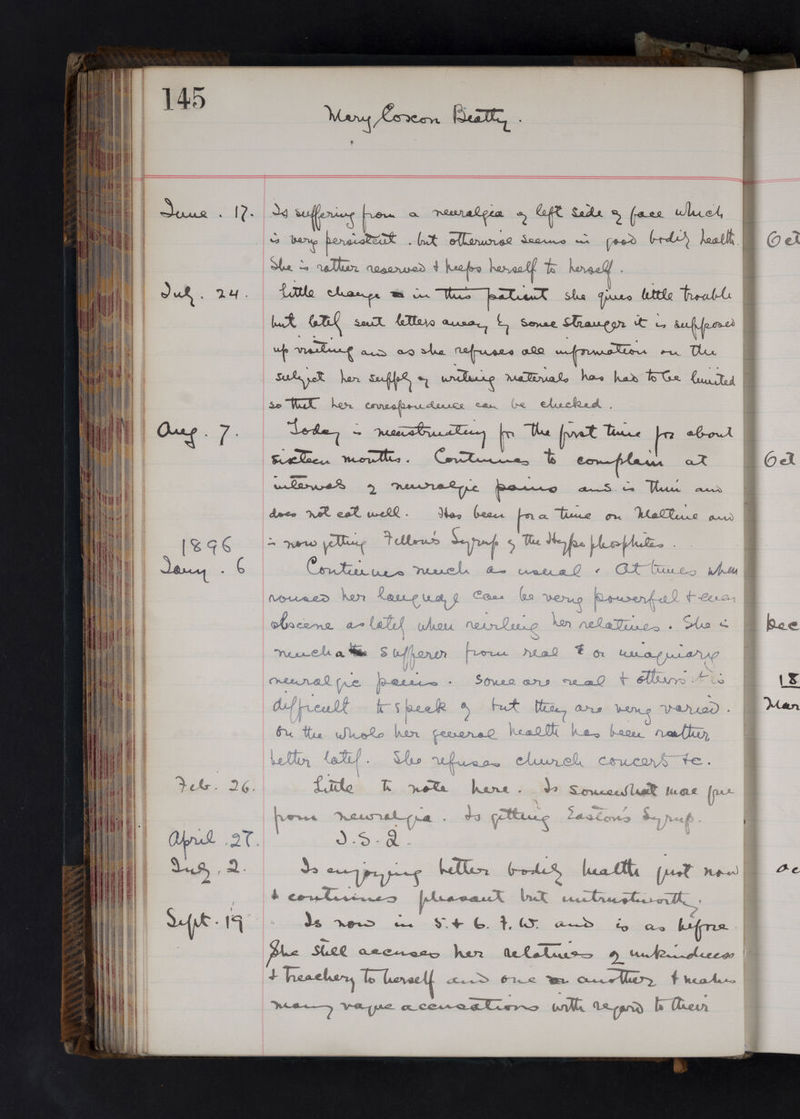 145
Mary Coxon Beatty.
June. 17. Is suffering from a neuralgia of left side of face which
is very persistent. but otherwise seems in good bodily health.
She is rather reserved & keeps herself to herself.
July. 24. Little change in this patient she gives little trouble
but lately sent letters away by some stranger it is supposed
up visiting and as she refuses all information on the
subject her supply of writing materials has had to be limited
so that her correspondence can be checked.
Aug. 7. Today is menstruating for the first time for about
sixteen months. Continues to complain at
intervals of neuralgic pains and is thin and
does not eat well. Has been for a time on Maltine and
is now getting Fellow's Syrup of the Hypophosphites.
1896
Jany. 6 Continues much as usual. At times when
roused her language can be very powerful & even
obscene as lately when reviling her relatives. She is
much a sufferer from real & or imaginary
neuralgic pains. Some are real & others it is
difficult to speak of but they are very varied.
On the whole her general health has been rather
better lately. She refuses church concerts &c.
Feb. 26. Little to note here. Is somewhat more free
from neuralgia. Is getting Easton's Syrup.
April. 27. I.S.Q.
July. 2. Is enjoying better bodily health just now
& continues pleasant but untrustworthy.
Sept. 19 Is now in S. & G. F. W. and is as before
She still accuses her relatives of unkindness
& treachery to herself and one another & makes
many vague accusations with regard to their
Oct
Oct
Dec
18
Mar
Oc